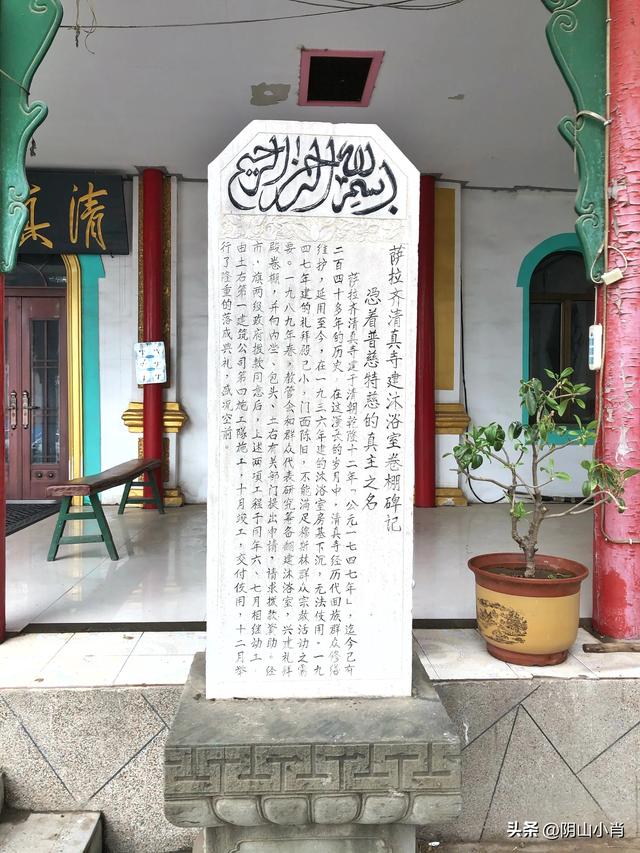 بسم الله الرحمن الرحيم
萨拉齐清真寺建沐浴室卷棚碑记
凭着普慈特慈的真主之名
萨拉齐清真寺建于清朝乾隆十二年「公元一七四七年」，迄今已有
二百四十多年的历史，在这漫长的岁月中，清真寺经历代回族群众修缮
维护，延用至今，在一九三六年建的沐浴室房基下沉，无法使用。一九
四七年建的礼拜殿已小，门面陈旧，不能满足穆斯林群众宗教活动之需
要。一九八九年春，教管会和群众代表研究筹备翻建沐浴室，兴建礼拜
殿卷棚，并向内蒙、包头、土右有关部门提出申请，请求拨款资助。经
市、旗两级政府拨款同意后，上述两项工程于同年六、七月相继动工，
由土右第一建筑公司第四施工队施工，十月竣工，交付使用，十二月举
行了隆重的落成典礼，盛况空前。
清真
头条 @阴山小肖